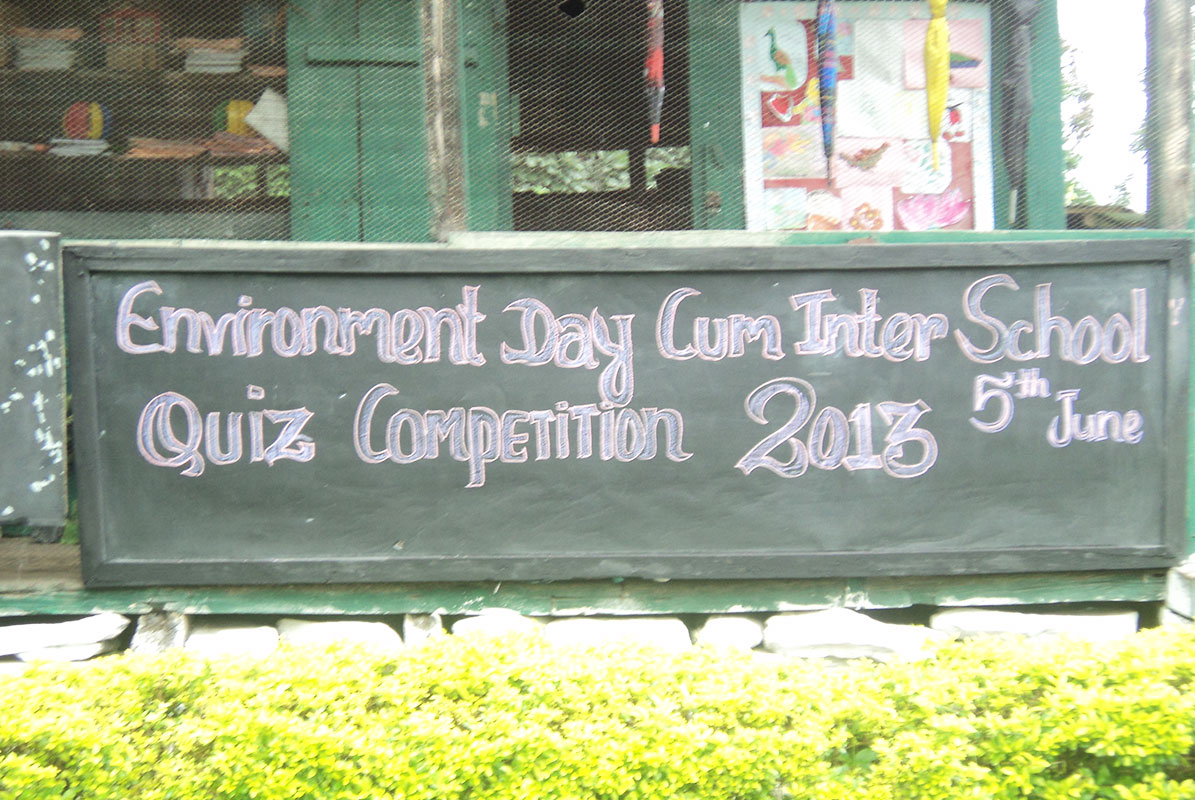 Environment Day Cum Inter School
Quiz Competition 2013 5th June